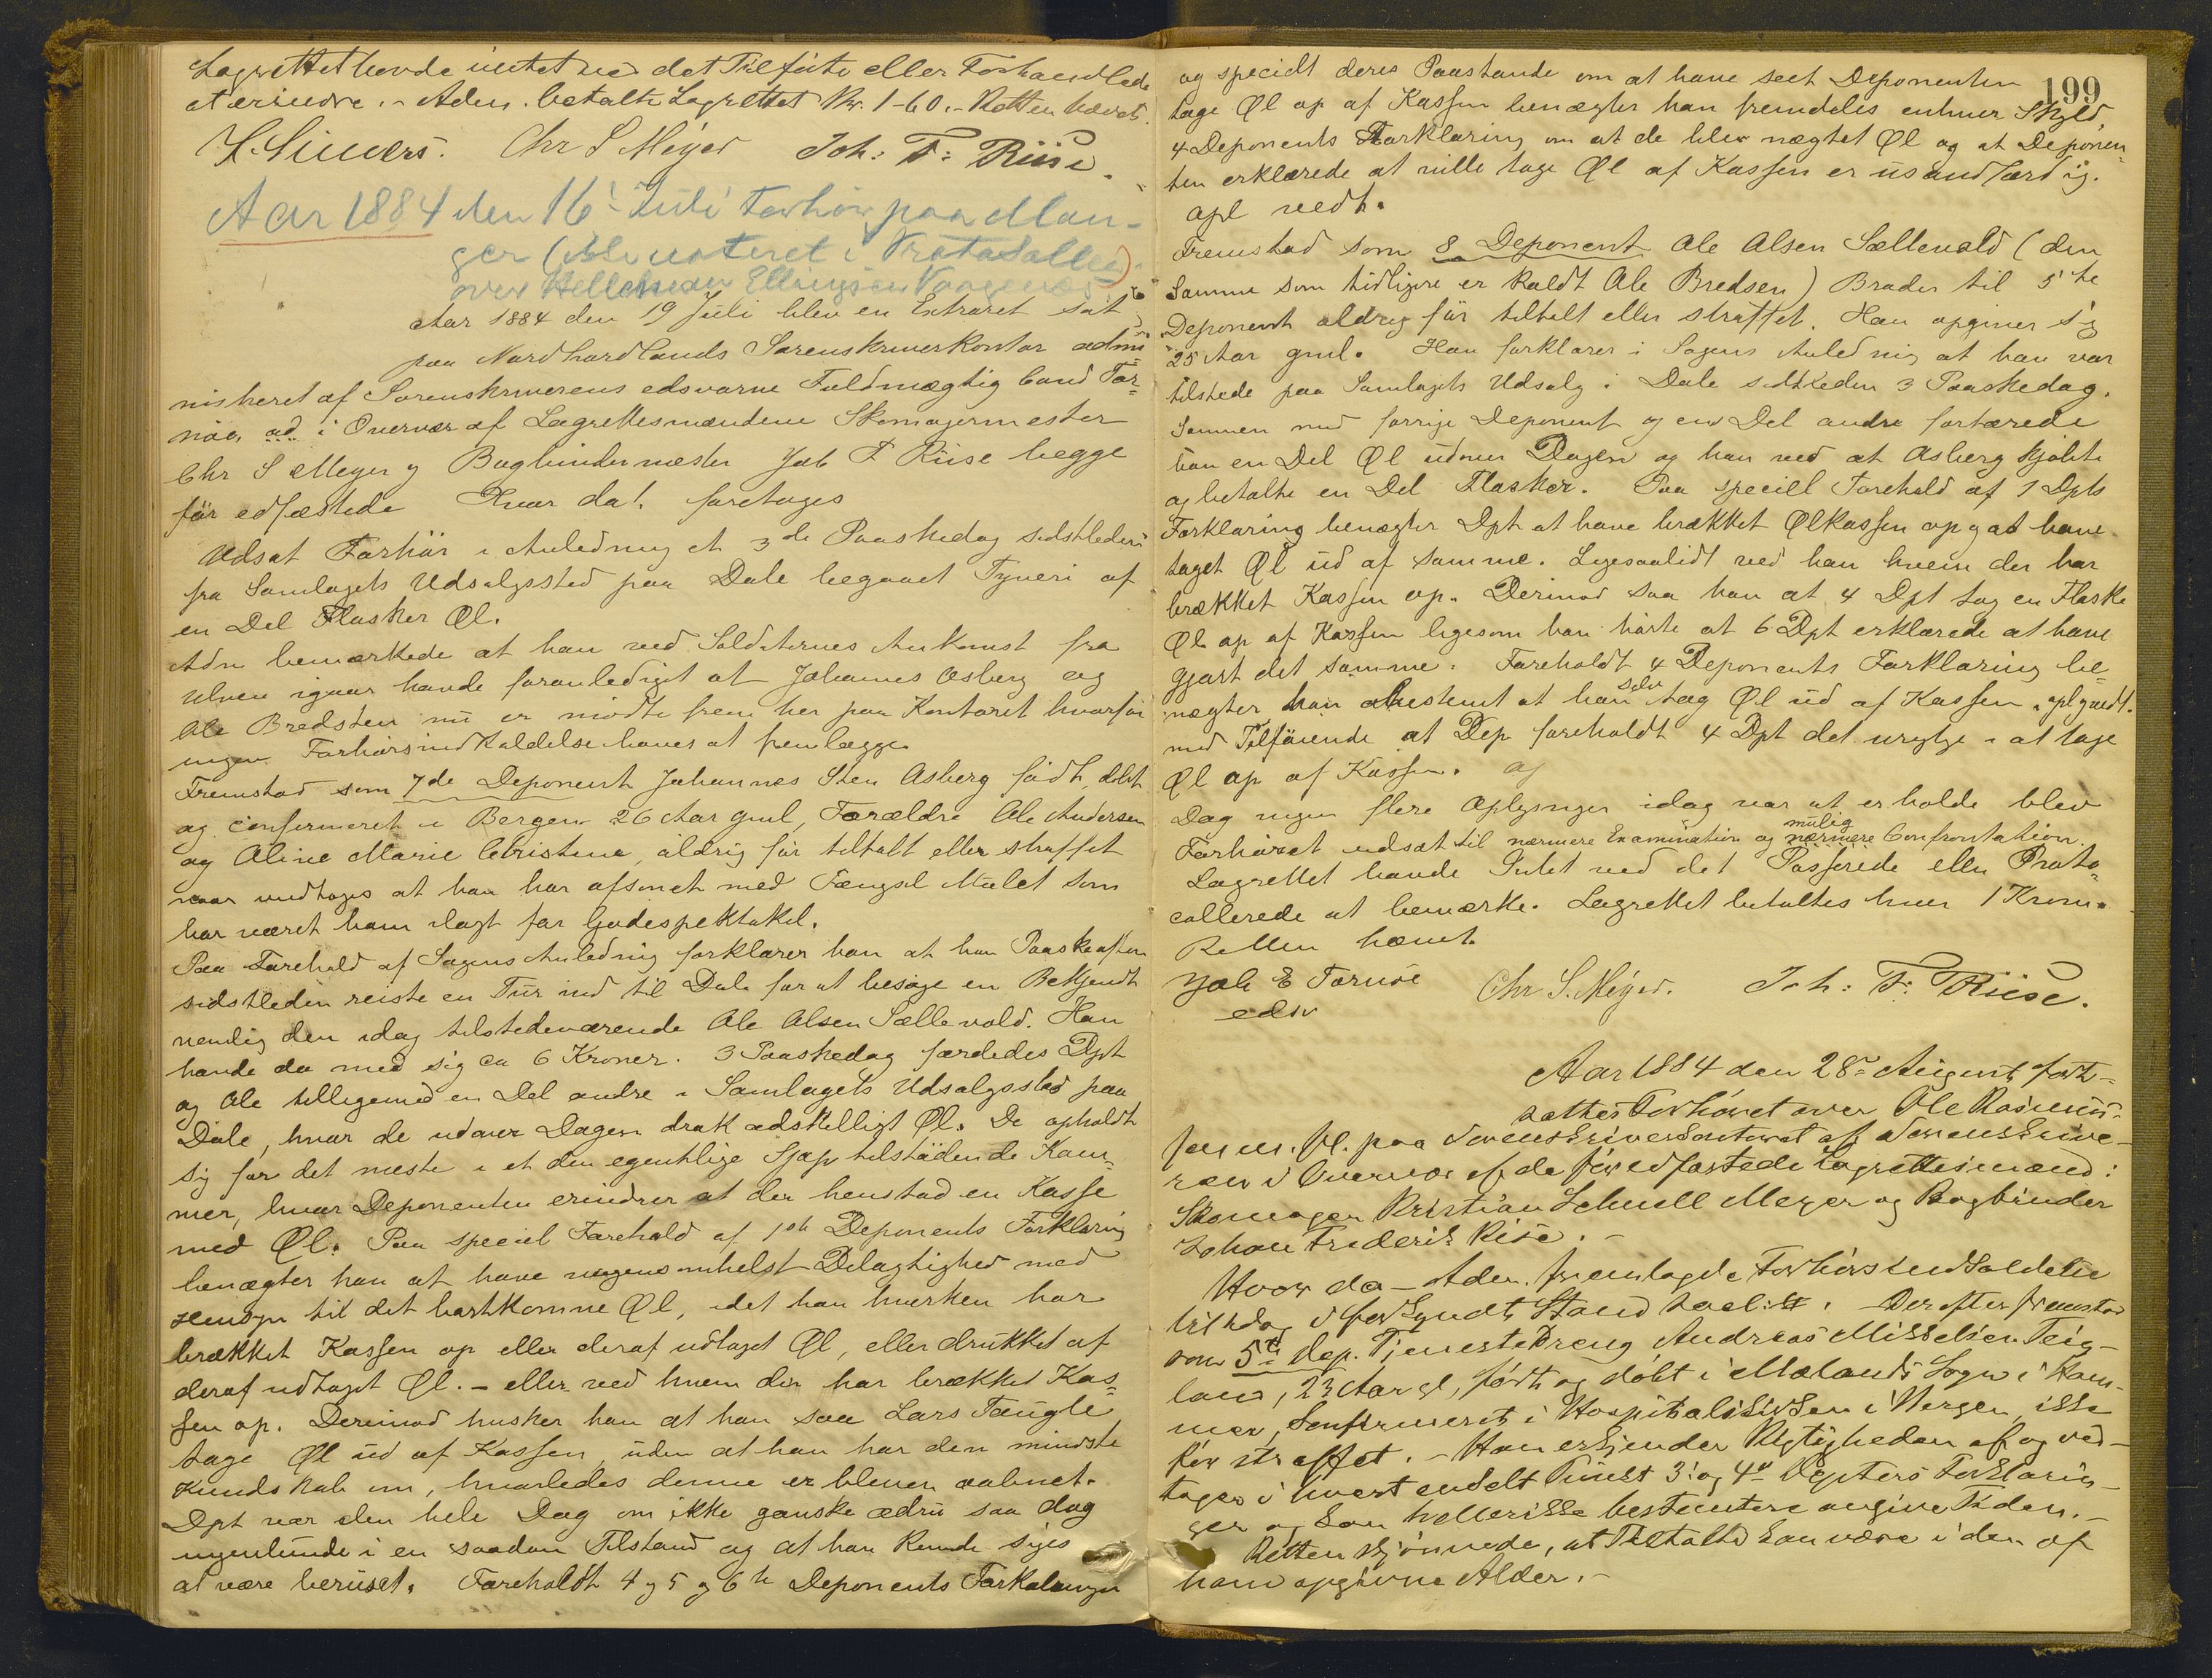 Lagrettet havde intet ved det Tilførte eller Forhandlede
at erindre. - Adm. betalte Lagrettet Kr. 1-60. - Retten hævet.
Chr S Meyer Joh: F: Riise.
Aar 1884 den 16' Juli Forhør paa Man-
ger (ikke noteret i Protokollen)
over Ellingsen
Aar 1884 den 19 Juli blev en Extraret sat
paa Nordhordlands Sorenskriverkontor admi-
nistreret af Sorenskriverens edsvorne Fuldmægtig Cand Tor-
nöe, i Overvær af Lagrettesmændene Skomagermester
Chr S Meyer og Bogbindermester Joh F Riise begge
før edfæstede Hvor da! foretoges
Udsat Forhör i Anledning et 3de Paaskedag sidstleden
fra Samlagets Udsalgssted paa Dale begaaet Tyveri af
en Del Flasker Øl.
Adm bemærkede at han ved Soldaternes Ankomst fra
Ulven igaar havde foranlediget at Johannes Asberg og
Ole Bredsten nu er mödte frem her paa Kontoret hvorfor
ingen Forhørsindkaldelse haves at fremlægge.
Fremstod som 7de Deponent Johannes Sten Asberg födt, döbt
og confirmeret i Bergen 26 Aar gml, Forældre Ole Andersen
og Oline Marie Christine, aldrig før tiltalt eller straffet
naar undtages at han har afsonet med Fængsel Mulct som
har været ham ilagt for Gadespektakel.
Paa Forehold af Sagens Anledning forklarer han at han Paaskeaften
sidstleden reiste en Tur ind til Dale for at besøge en Bekjendt
nemlig den idag tilstedeværende Ole Olsen Sællevold. Han
havde da med sig ca 6 Kroner. 3 Paaskedag færdedes Dpt
og Ole tilligemed en Del andre i Samlagets Udsalgssted paa
Dale, hvor de udover Dagen drak adskilligt Øl. De opholdt
sig for det meste i et den egentlige Sjap tilstödende Kam-
mer, hvor Deponenten erindrer at der henstod en Kasse
med Øl. Paa speciel Forehold af 1ste Deponents Forklaring
benægter han at have nogensomhelst Delagtighed med
Hensyn til det bortkomne Øl, idet han hverken har
brækket Kassen op eller deraf udtaget Øl, eller drukket af
deraf udtaget Øl. - eller ved hvem der har brækket Kas-
sen op. Derimod husker han at han saa Lars Tangle
tage Øl ud af Kassen, uden at han har den mindste
Kundskab om, hvorledes denne er bleven aabnet.
Dpt var den hele Dag om ikke ganske ædru saa dog
ingenlunde i en saadan Tilstand og at han kunde siges
at være beruset. Foreholdt 4 og 5 og 6te Deponents Forklaringer
199
og specielt deres Paastande om at have seet Deponenten
tage Øl op af Kassen benægter han fremdeles enhver Skyld,
4 Deponents Forklaring om at de blev nægtet Øl og at Deponen-
ten erklærede at ville tage Øl af Kassen er usandfærdig.
opl vedt.
Fremstod som 8 Deponent Ole Olsen Sællevold (den
samme som tidligere er kaldt Ole Bredsen) Broder til 5te
Deponent aldrig før tiltalt eller straffet. Han opgiver sig
25 Aar gml. Han forklarer i Sagens Anledning at han var
tilstede paa Samlagets Udsalg i Dale sidstleden 3 Paaskedag.
Sammen med forrige Deponent og en Del andre fortærede
han en Del Øl udover Dagen og han ved at Asberg kjøbte
og betalte en Del Flasker. Paa speciell Forehold af 1 Dpts
Forklaring benægter Dpt at have brækket Ølkassen op og at have
taget Øl ud af samme. Ligesaalidt ved han hvem der har
brækket Kassen op. Derimod saa han at 4 Dpt tog en Flaske
Øl op af Kassen ligesom han hørte at 6 Dpt erklærede at have
gjort det samme. Foreholdt 4 Deponents Forklaring be-
nægter han bestemt at han selv tog Øl ud af Kassen. opl vedt.
med Tilføiende at Dep foreholdt 4 Dpt det urigtige i at tage
Øl op af Kassen.
Dag ingen flere Oplysninger idag var at erholde blev
Forhøret udsat til nærmere Examination og mulig nærmere Confrontation.
Lagrettet havde Intet ved det Passerede eller Proto-
collerede at bemærke. Lagrettet betaltes hver 1 Krone.
Retten hævet.
Jak E Tornöe
edsv
Chr S. Meyer. Joh: F: Riise.
Aar 1884 den 28de August fort-
sattes Forhöret over Ole Rasmus-
sen m. fl. paa Sorenskriverkontoret af Sorenskrive-
ren i Overvær af de før edfæstede Lagrettesmænd:
Skomager Kristian Schnell Meyer og Bogbinder
Johan Frederik Riise. -
Hvor da - Adm. fremlagde Forhørsindkaldelse
til idag i forkyndt Stand . - Derefter fremstod
som 5te Dep. Tjenestedreng Andreas Mikkelsen Teig-
land, 23 Aar gl, født og døbt i Mælands Sogn i Ham-
mer, konfirmeret i Hospitalskirken i Bergen, ikke
før straffet. - Han erkjender Rigtigheden af og ved-
tager i hvert enkelt Punkt 3' og 4de Depters Forklarin-
ger og kan heller ikke bestemtere angive Tiden. -
Retten skjønnede, at Tiltalte kan være i den af
ham opgivne Alder. -